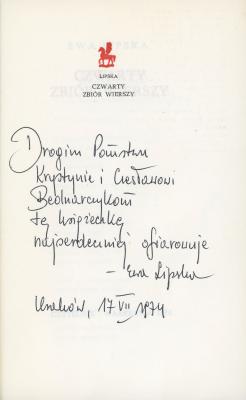 LIPSKA
CZWARTY
ZBIÓR WIERSZY
Drogim Państwu
Krystynie i Czesławowi
Bednarczykom
tę książeczkę
najserdeczniej ofiarowuje
- Ewa Lipska
Kraków, 17 VII 1974